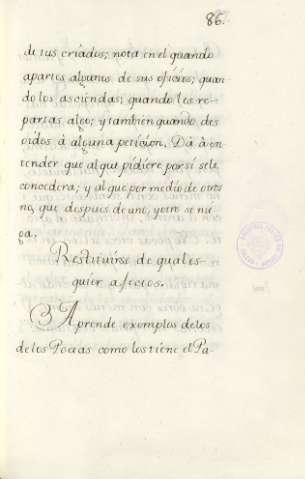 86.
de sus criados; nota en el quando
apartes algunos de sus oficios; quan
do los asciendas; quando les re-
partas algo; y tambien quando des
oidos à alguna peticion. Dà à en-
tender que al que pidiere por si se le
concederà; y al que por medio de otros
no, que despues de uno, y otro se ni
ga.
Restituirse de quales-
quier afectos.
Aprende exemplos de los
de los Poetas como los tiene el Pa-